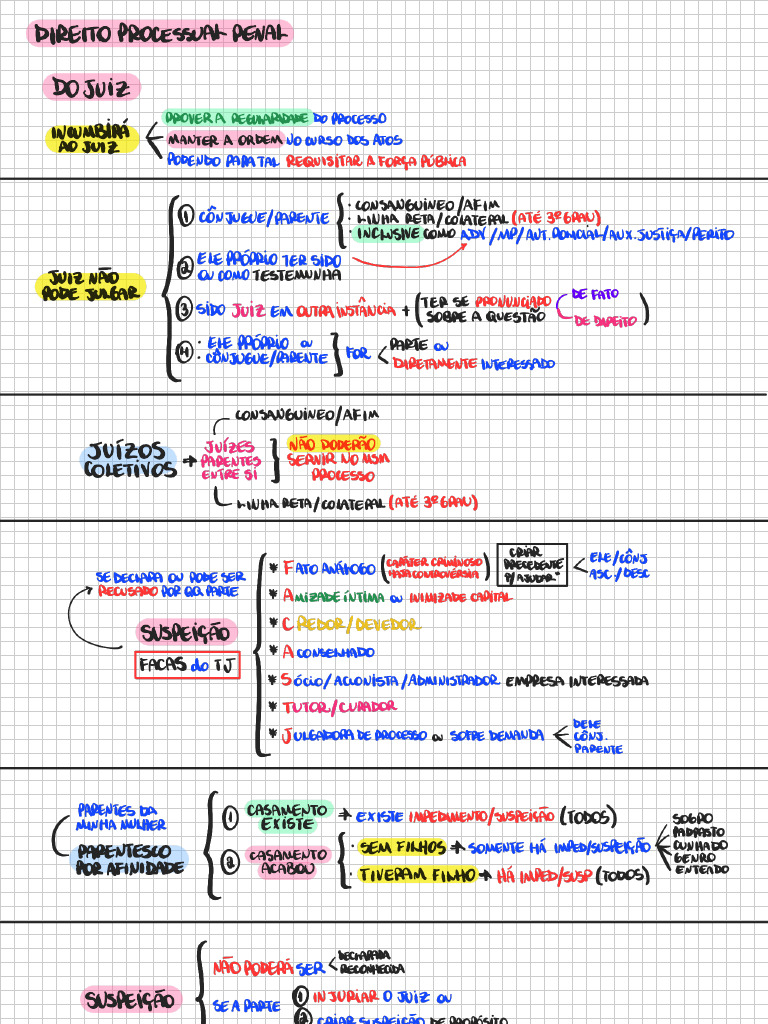 DIREITO PROCESSUAL PENAL
DO JUIZ
INCUMBIRÁ
AO JUIZ
PROVER A REGULARIDADE DO PROCESSO
MANTER A ORDEM NO CURSO DOS ATOS
PODENDO PARA TAL REQUISITAR A FORÇA PÚBLICA
JUIZ NÃO
PODE JULGAR
1 CÔNJUGUE/PARENTE
· CONSANGUINEO/AFIM
· LINHA RETA/COLATERAL (ATÉ 3º GRAU)
· INCLUSIVE COMO ADV/MP/AUT.POLICIAL/AUX.JUSTIÇA/PERITO
2 ELE PRÓPRIO TER SIDO
OU COMO TESTEMUNHA
3 SIDO JUIZ EM OUTRA INSTÂNCIA + (TER SE PRONUNCIADO
SOBRE A QUESTÃO
DE FATO
DE DIREITO)
4 · ELE PRÓPRIO OU
· CÔNJUGUE/PARENTE
FOR
PARTE OU
DIRETAMENTE INTERESSADO
CONSANGUINEO/AFIM
JUÍZOS
COLETIVOS →
JUÍZES
PARENTES
ENTRE SI
NÃO PODERÃO
SERVIR NO MSM
PROCESSO
LINHA RETA/COLATERAL (ATÉ 3º GRAU)
SE DECLARA OU PODE SER
RECUSADO POR QQ PARTE
SUSPEIÇÃO
FACAS do TJ
* FATO ANÁLOGO (CARÁTER CRIMINOSO
HAJA CONTROVÉRSIA)
CRIAR
PRECEDENTE
P/ AJUDAR"
ELE/CÔNJ
ASC/DESC
* AMIZADE ÍNTIMA OU INIMIZADE CAPITAL
* CREDOR/DEVEDOR
* ACONSELHADO
* SÓCIO/ACIONISTA/ADMINISTRADOR EMPRESA INTERESSADA
* TUTOR/CURADOR
* JULGADORA DE PROCESSO OU SOFRE DEMANDA
DELE
CÔNJ.
PARENTE
PARENTES DA
MINHA MULHER
PARENTESCO
POR AFINIDADE
1 CASAMENTO
EXISTE
→ EXISTE IMPEDIMENTO/SUSPEIÇÃO (TODOS)
2 CASAMENTO
ACABOU
· SEM FILHOS → SOMENTE HÁ IMPED/SUSPEIÇÃO
SOGRO
PADRASTO
CUNHADO
GENRO
ENTEADO
· TIVERAM FILHO → HÁ IMPED/SUSP (TODOS)
SUSPEIÇÃO
NÃO PODERÁ SER
DECLARADA
RECONHECIDA
SE A PARTE
1 INJURIAR O JUIZ OU
2 CRIAR SUSPEIÇÃO DE PROPÓSITO